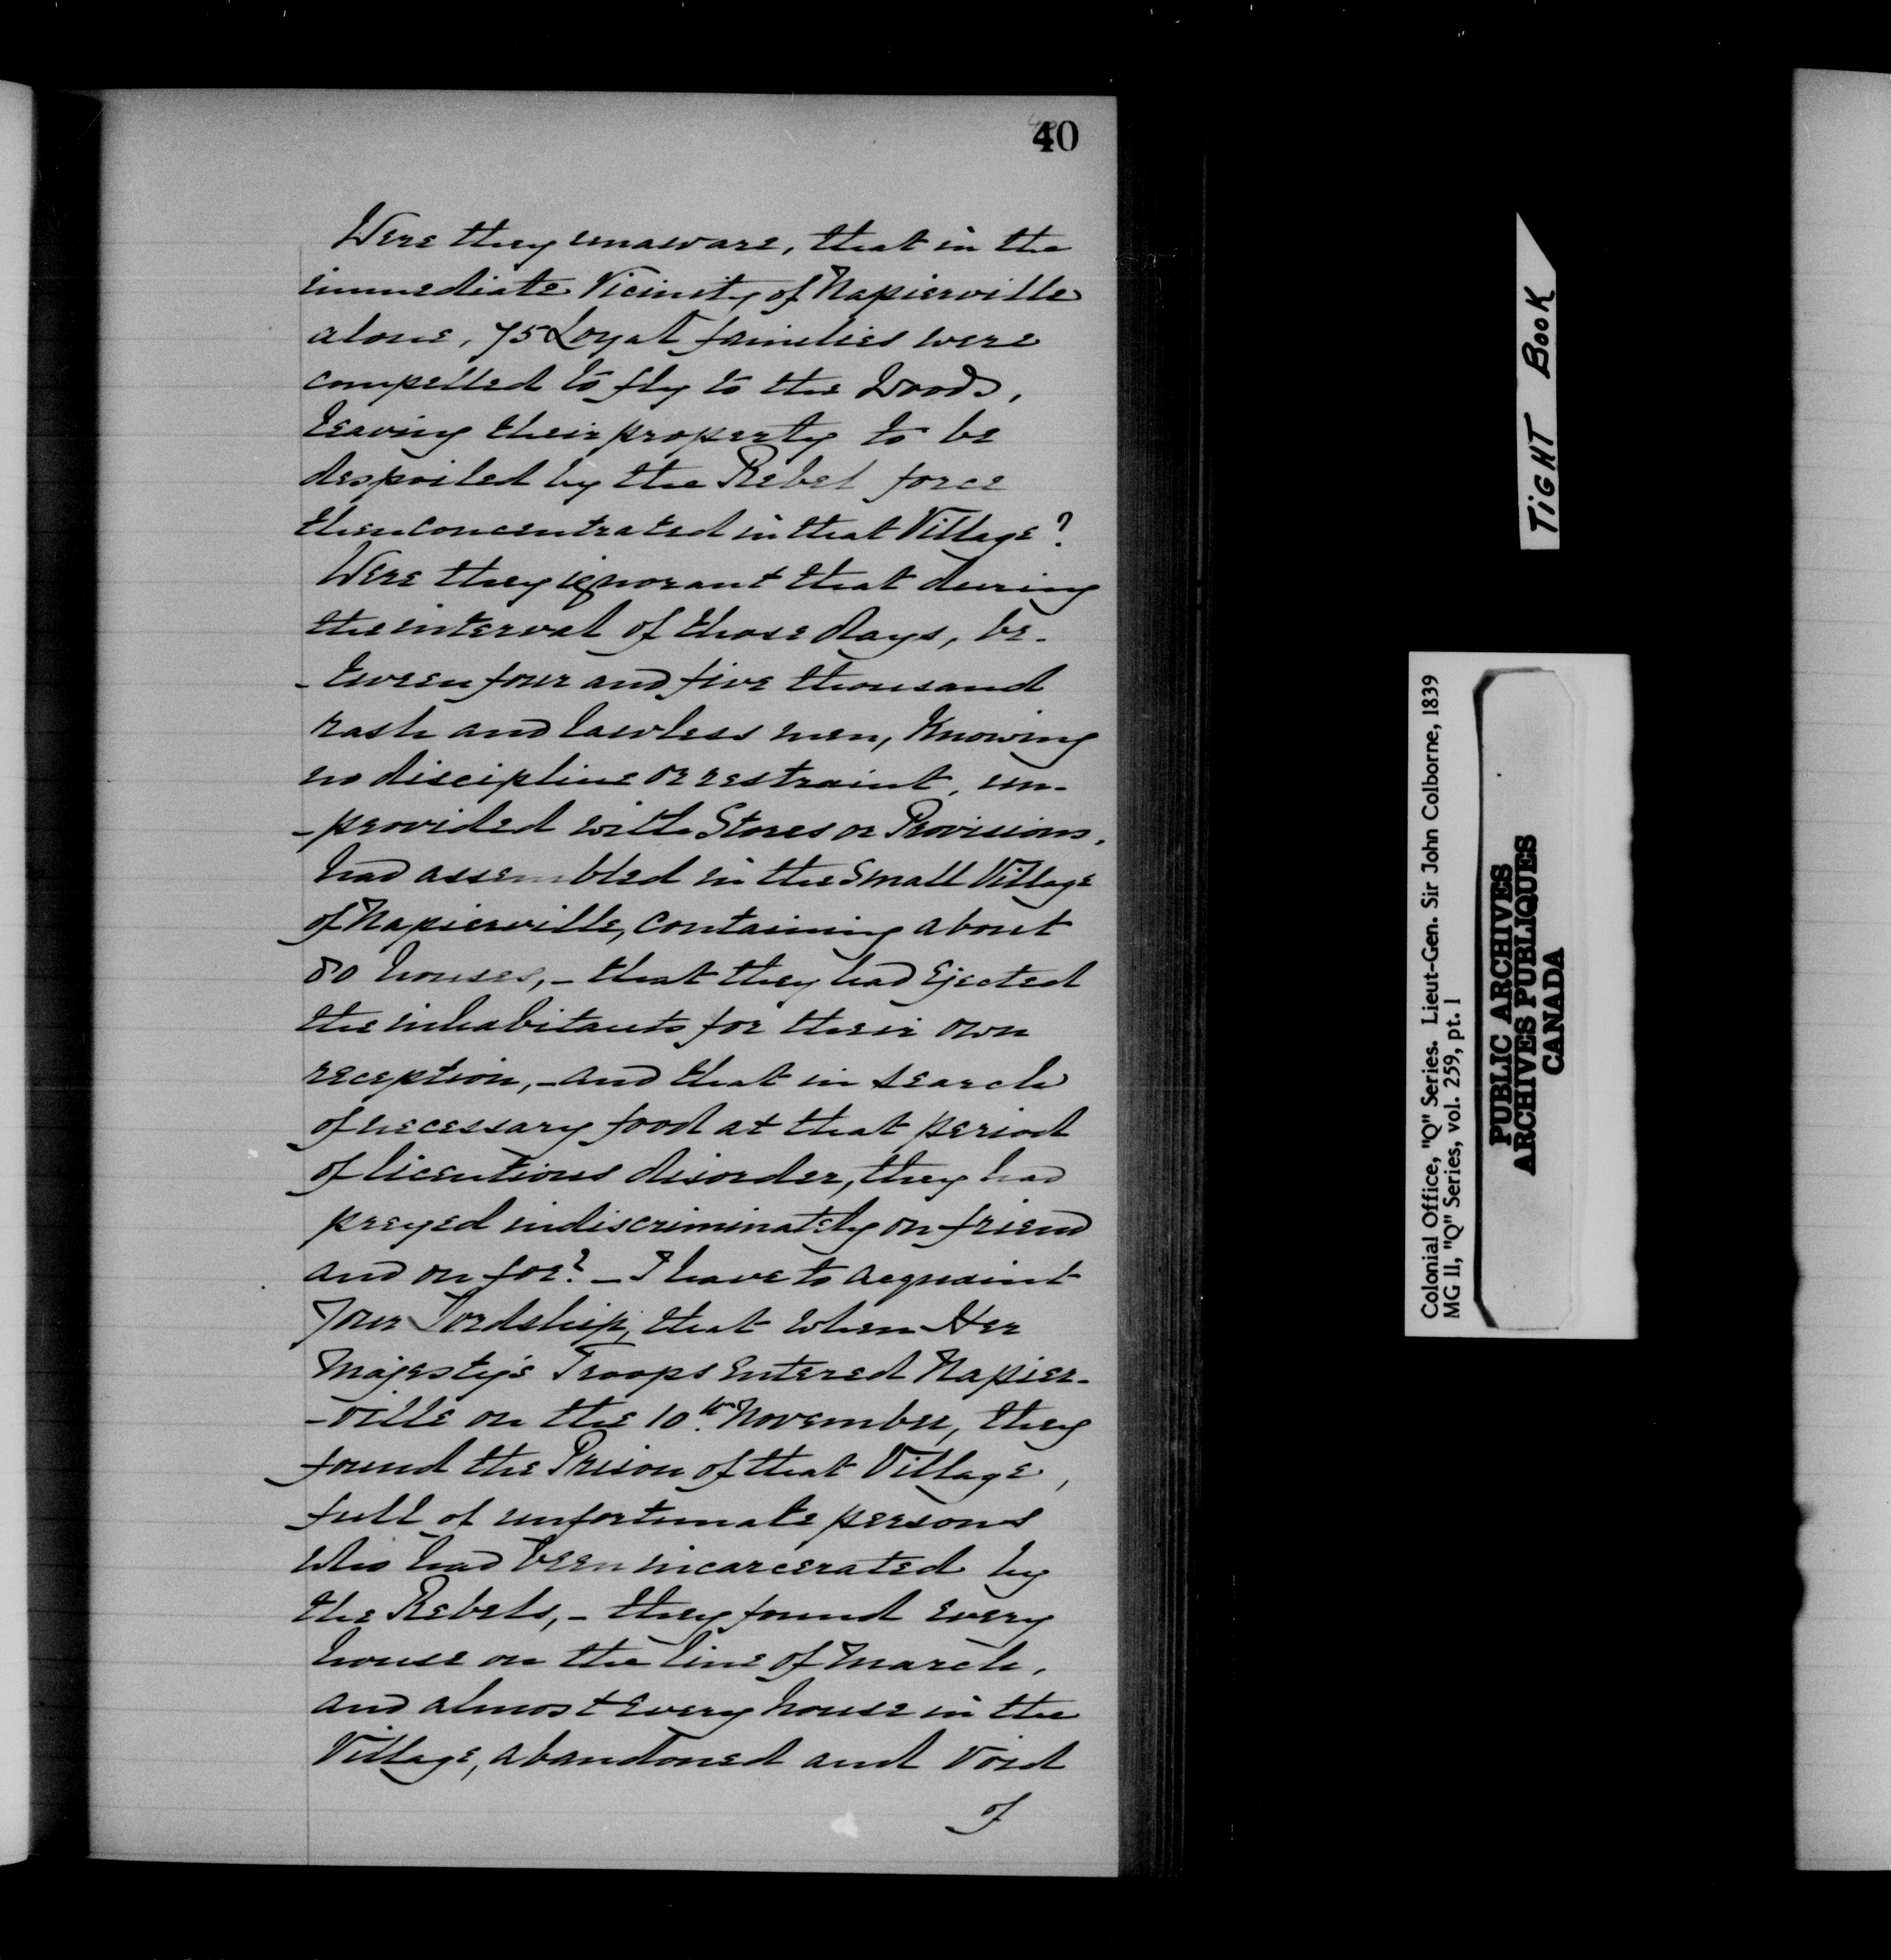 40
Were they unaware, that in the
immediate Vicinity of Napierville
alone, 75 Loyal families were
compelled to fly to the Woods,
leaving their property to be
despoiled by the Rebel force
then concentrated in that Village?
Were they ignorant that during
the interval of those days, be-
-tween four and five thousand
rash and lawless men, Knowing
no discipline or restraint, un-
-provided with Stores or Provisions,
had assembled in the Small Village
of Napierville, containing about
80 houses, - that they had Ejected
the inhabitants for their own
reception, - and that in search
of necessary food at that period
of licentious disorder, they had
preyed indiscriminately on friend
and on foe? - I have to acquaint
Your Lordship, that when Her
Majesty's Troops Entered Napier-
-ville on the 10th November, they
found the Prison of that Village,
full of unfortunate persons
who had been incarcerated by
the Rebels, - they found every
house on the line of March,
and almost Every house in the
Village, abandoned and Void
of
TIGHT BOOK
Colonial Office, "Q" Series. Lieut-Gen. Sir John Colborne, 1839
MG 11, "Q" Series, vol. 259, pt. 1
PUBLIC ARCHIVES
ARCHIVES PUBLIQUES
CANADA